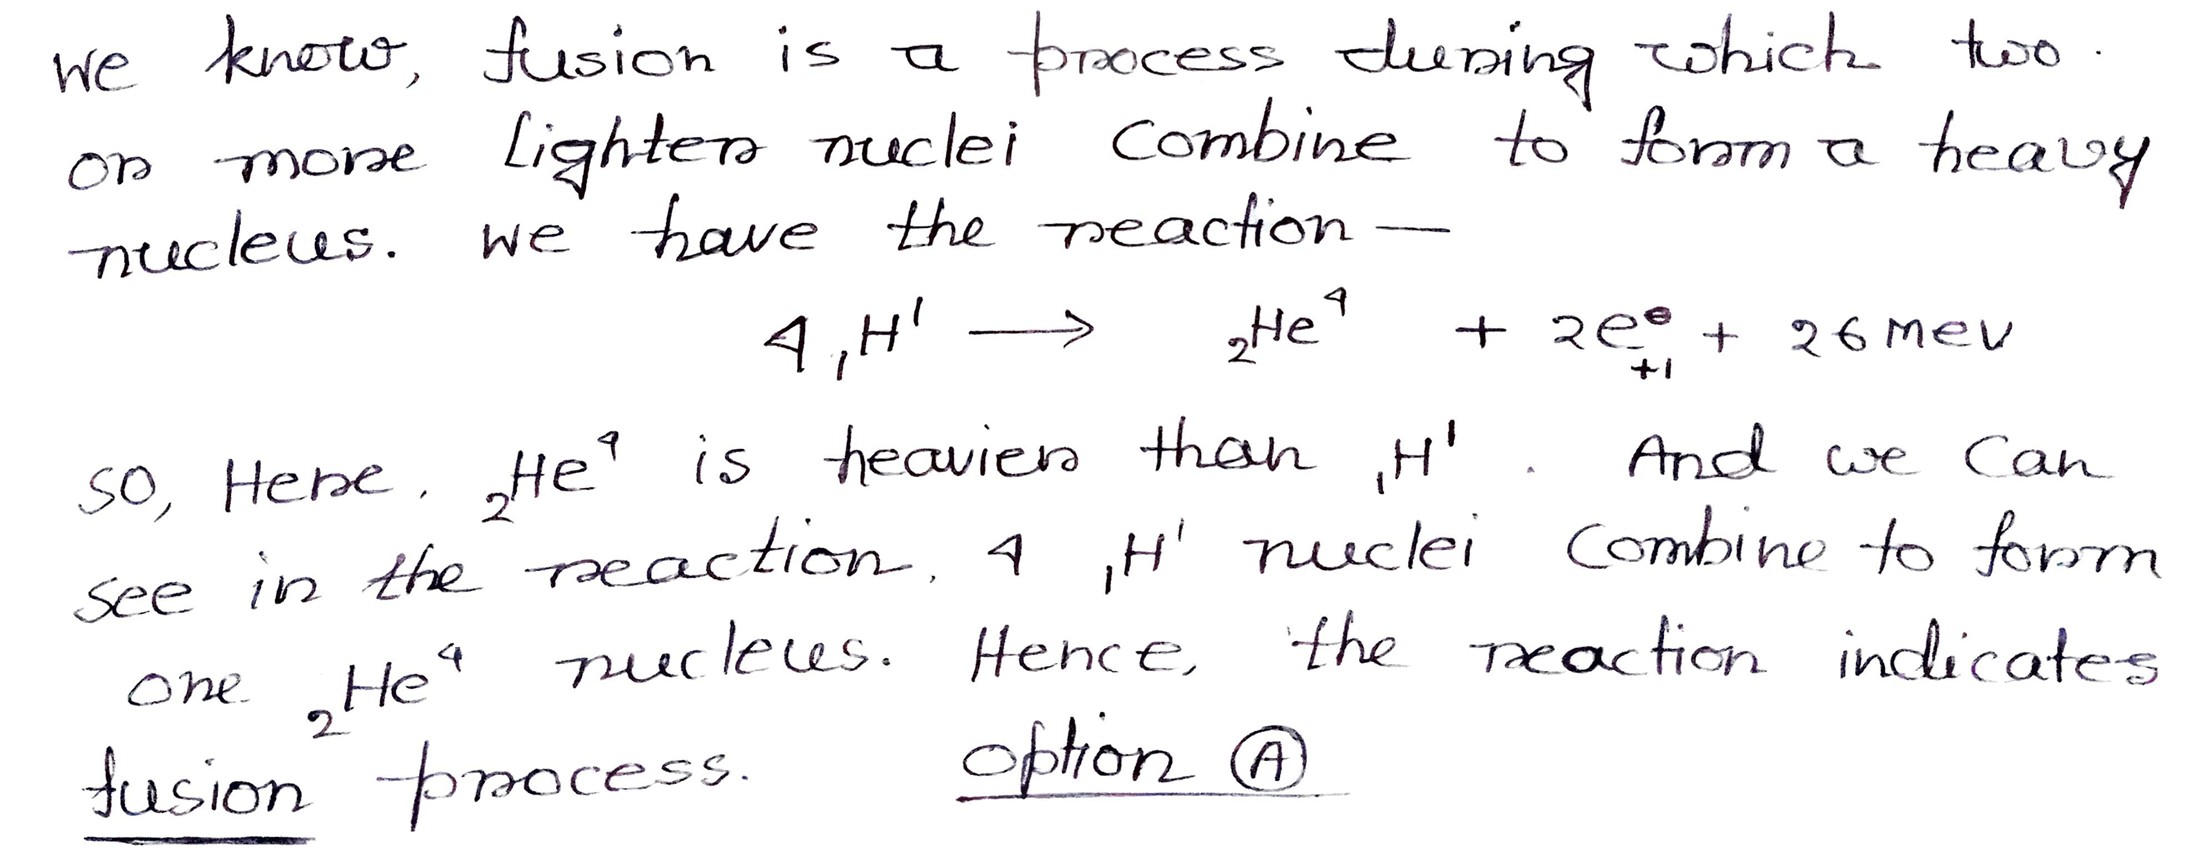 we know, fusion is a process during which two
or more lighter nuclei combine to form a heavy
nucleus. we have the reaction —
4 ₁H¹ ⟶ ₂He⁴ + 2e⁰₊₁ + 26 mev
so, Here, ₂He⁴ is heavier than ₁H¹. And we can
see in the reaction, 4 ₁H¹ nuclei combine to form
one ₂He⁴ nucleus. Hence, the reaction indicates
fusion process. option Ⓐ